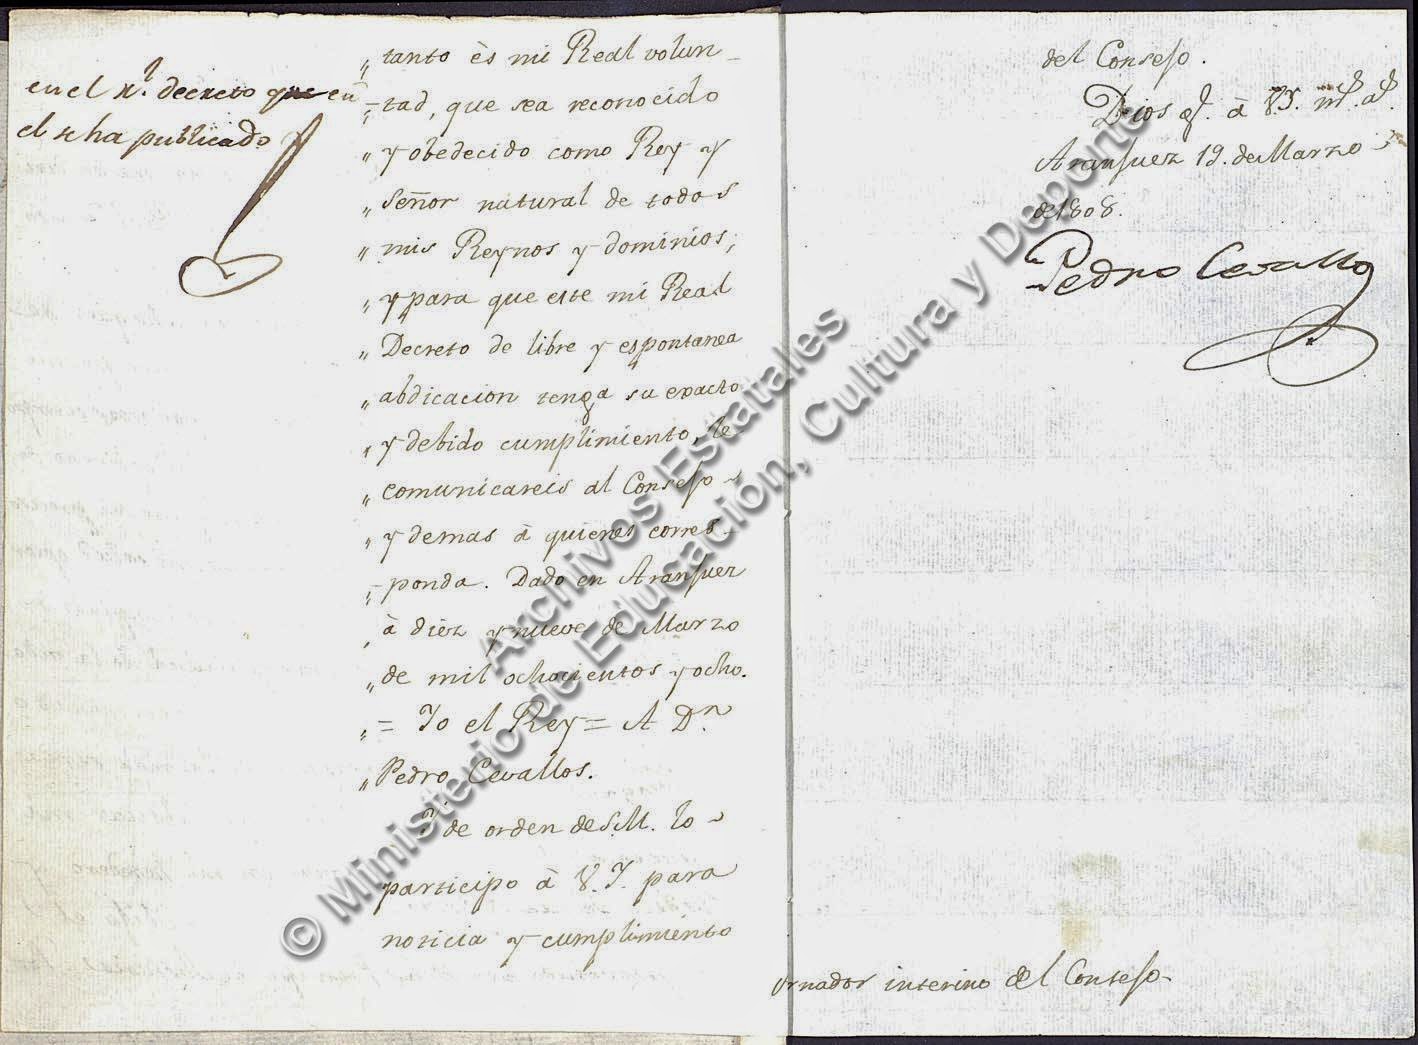 en el Rl. decreto que en
el se ha publicado
„ tanto ès mi Real volun-
„ -tad, que sea reconocido
„ y obedecido como Rey y
„ Señor natural de todos
„ mis Reynos y dominios;
„ y para que este mi Real
„ Decreto de libre y espontanea
„ abdicacion tenga su exacto
„ y debido cumplimiento, le
„ comunicareis al Consejo
„ y demas à quienes corres-
„ -ponda. Dado en Aranjuez
„ à diez y nueve de Marzo
„ de mil ochocientos y ocho.
„ = Yo el Rey = A Dn.
„ Pedro Cevallos.
Y de orden de S.M. lo
participo à V.I. para
noticia y cumplimiento
del Consejo.
Dios
Aranjuez 19. de Marzo
de 1808.
Pedro Cevallos
ornador interino del Consejo
© Ministerio de Educación, Cultura y Deporte
Archivos Estatales